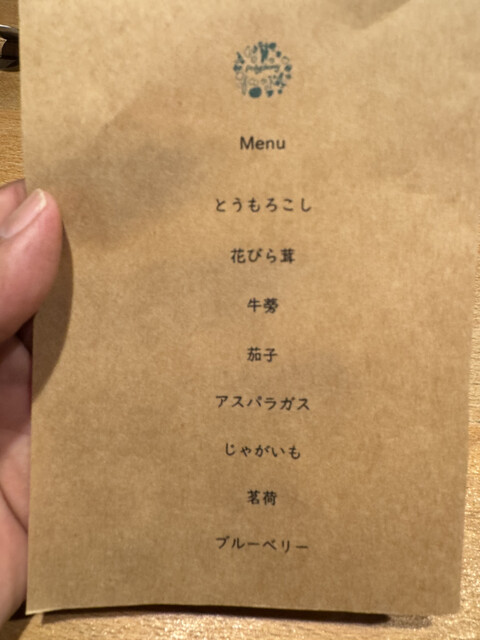 Menu
とうもろこし
花びら茸
牛蒡
茄子
アスパラガス
じゃがいも
茗荷
ブルーベリー